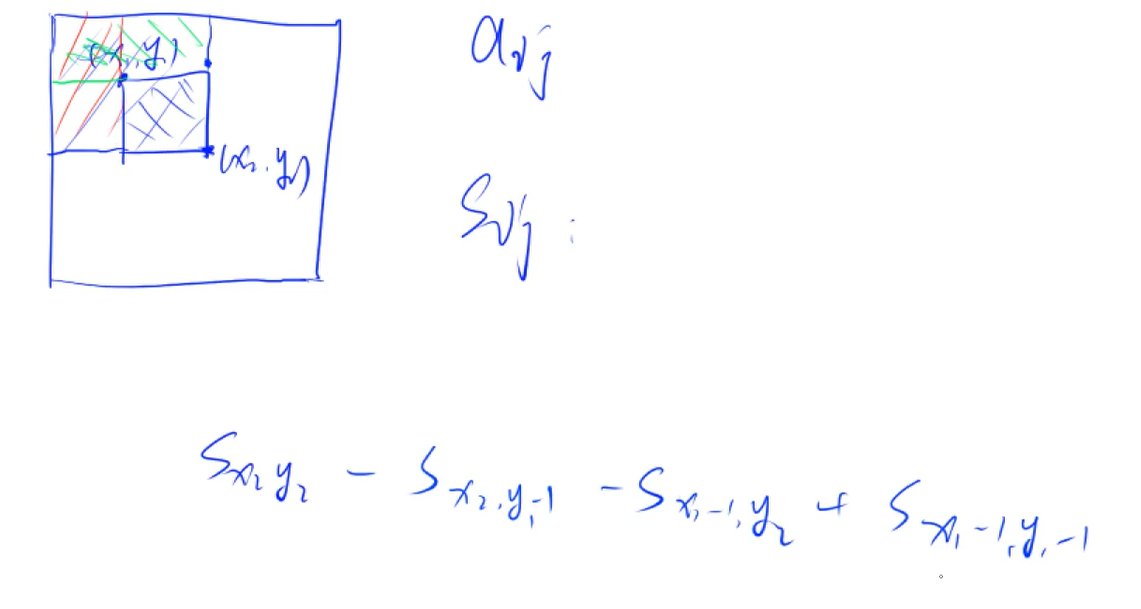 (x₁, y₁)
aᵢⱼ
(x₂, y₂)
Sᵢⱼ :
Sₓ₂y₂ - Sₓ₂,y₁-1 - Sₓ₁-1,y₂ + Sₓ₁-1,y₁-1